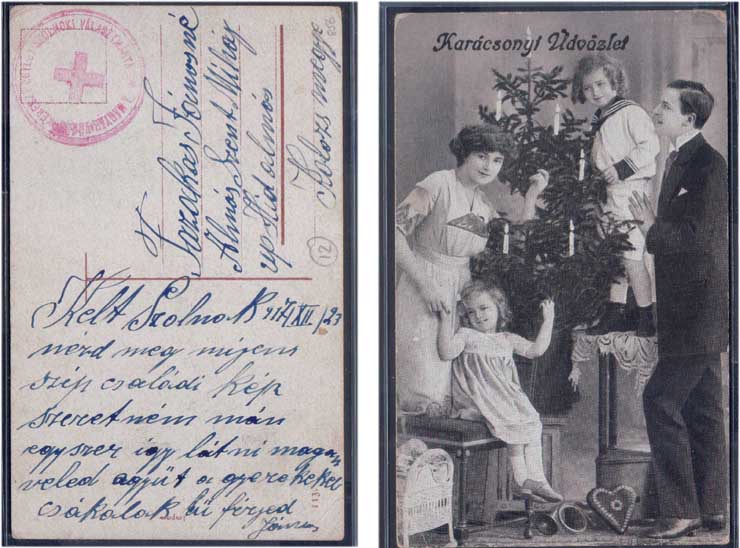 Fazakas Jánosné
Almás Szent Miháj
up Hid almás
Kolozs megye
12
Kelt Szolnok 917/XII./23
nezd meg mijens
szip családi kép
szeretném mán
egyszer igy látni magam
veled agyüt a gyerekekel
csákolak hü férjed
János
Karácsonyi Üdvözlet